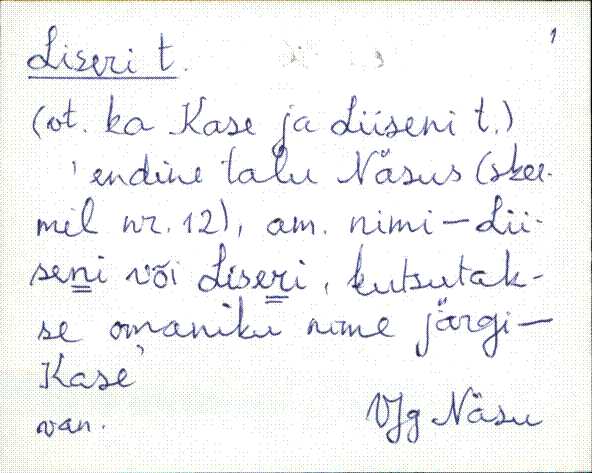 1
Liseri t.
(vt. ka Kase ja Liiseni t.)
'endine talu Näsus (skee-
mil nr. 12), am. nimi – Lii-
seni või Liseri, kutsutak-
se omaniku nime järgi –
Kase'
van. VJg Näsu